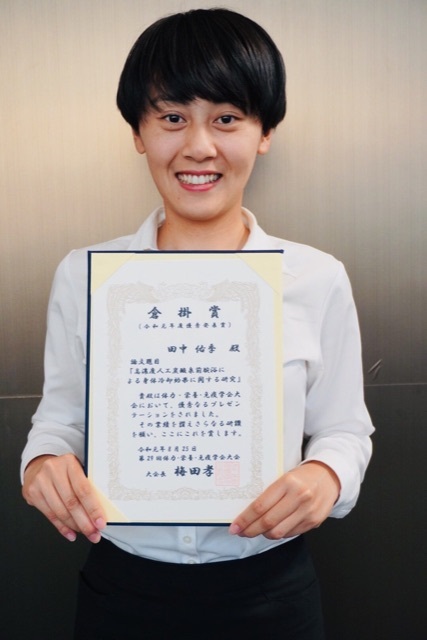 倉掛賞
(令和元年度優秀発表賞)
田中 佑季 殿
論文題目
「高濃度人工炭酸泉前腕浴に
よる身体冷却効果に関する研究」
貴殿は体力・栄養・免疫学会大
会において、優秀なるプレゼン
テーションをされました。
その業績を讃えさらなる研鑽
を願い、ここにこれを賞します。
令和元年8月23日
第29回体力・栄養・免疫学会大会
大会長 梅田孝